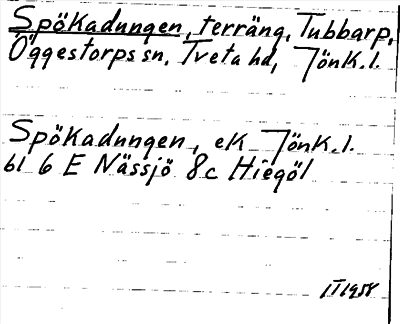 Spökadungen, terräng, Tubbarp,
Öggestorps sn, Tveta hd, Jönk.l.
Spökadungen, ek Jönk.l.
bl 6 E Nässjö 8c Hiegöl